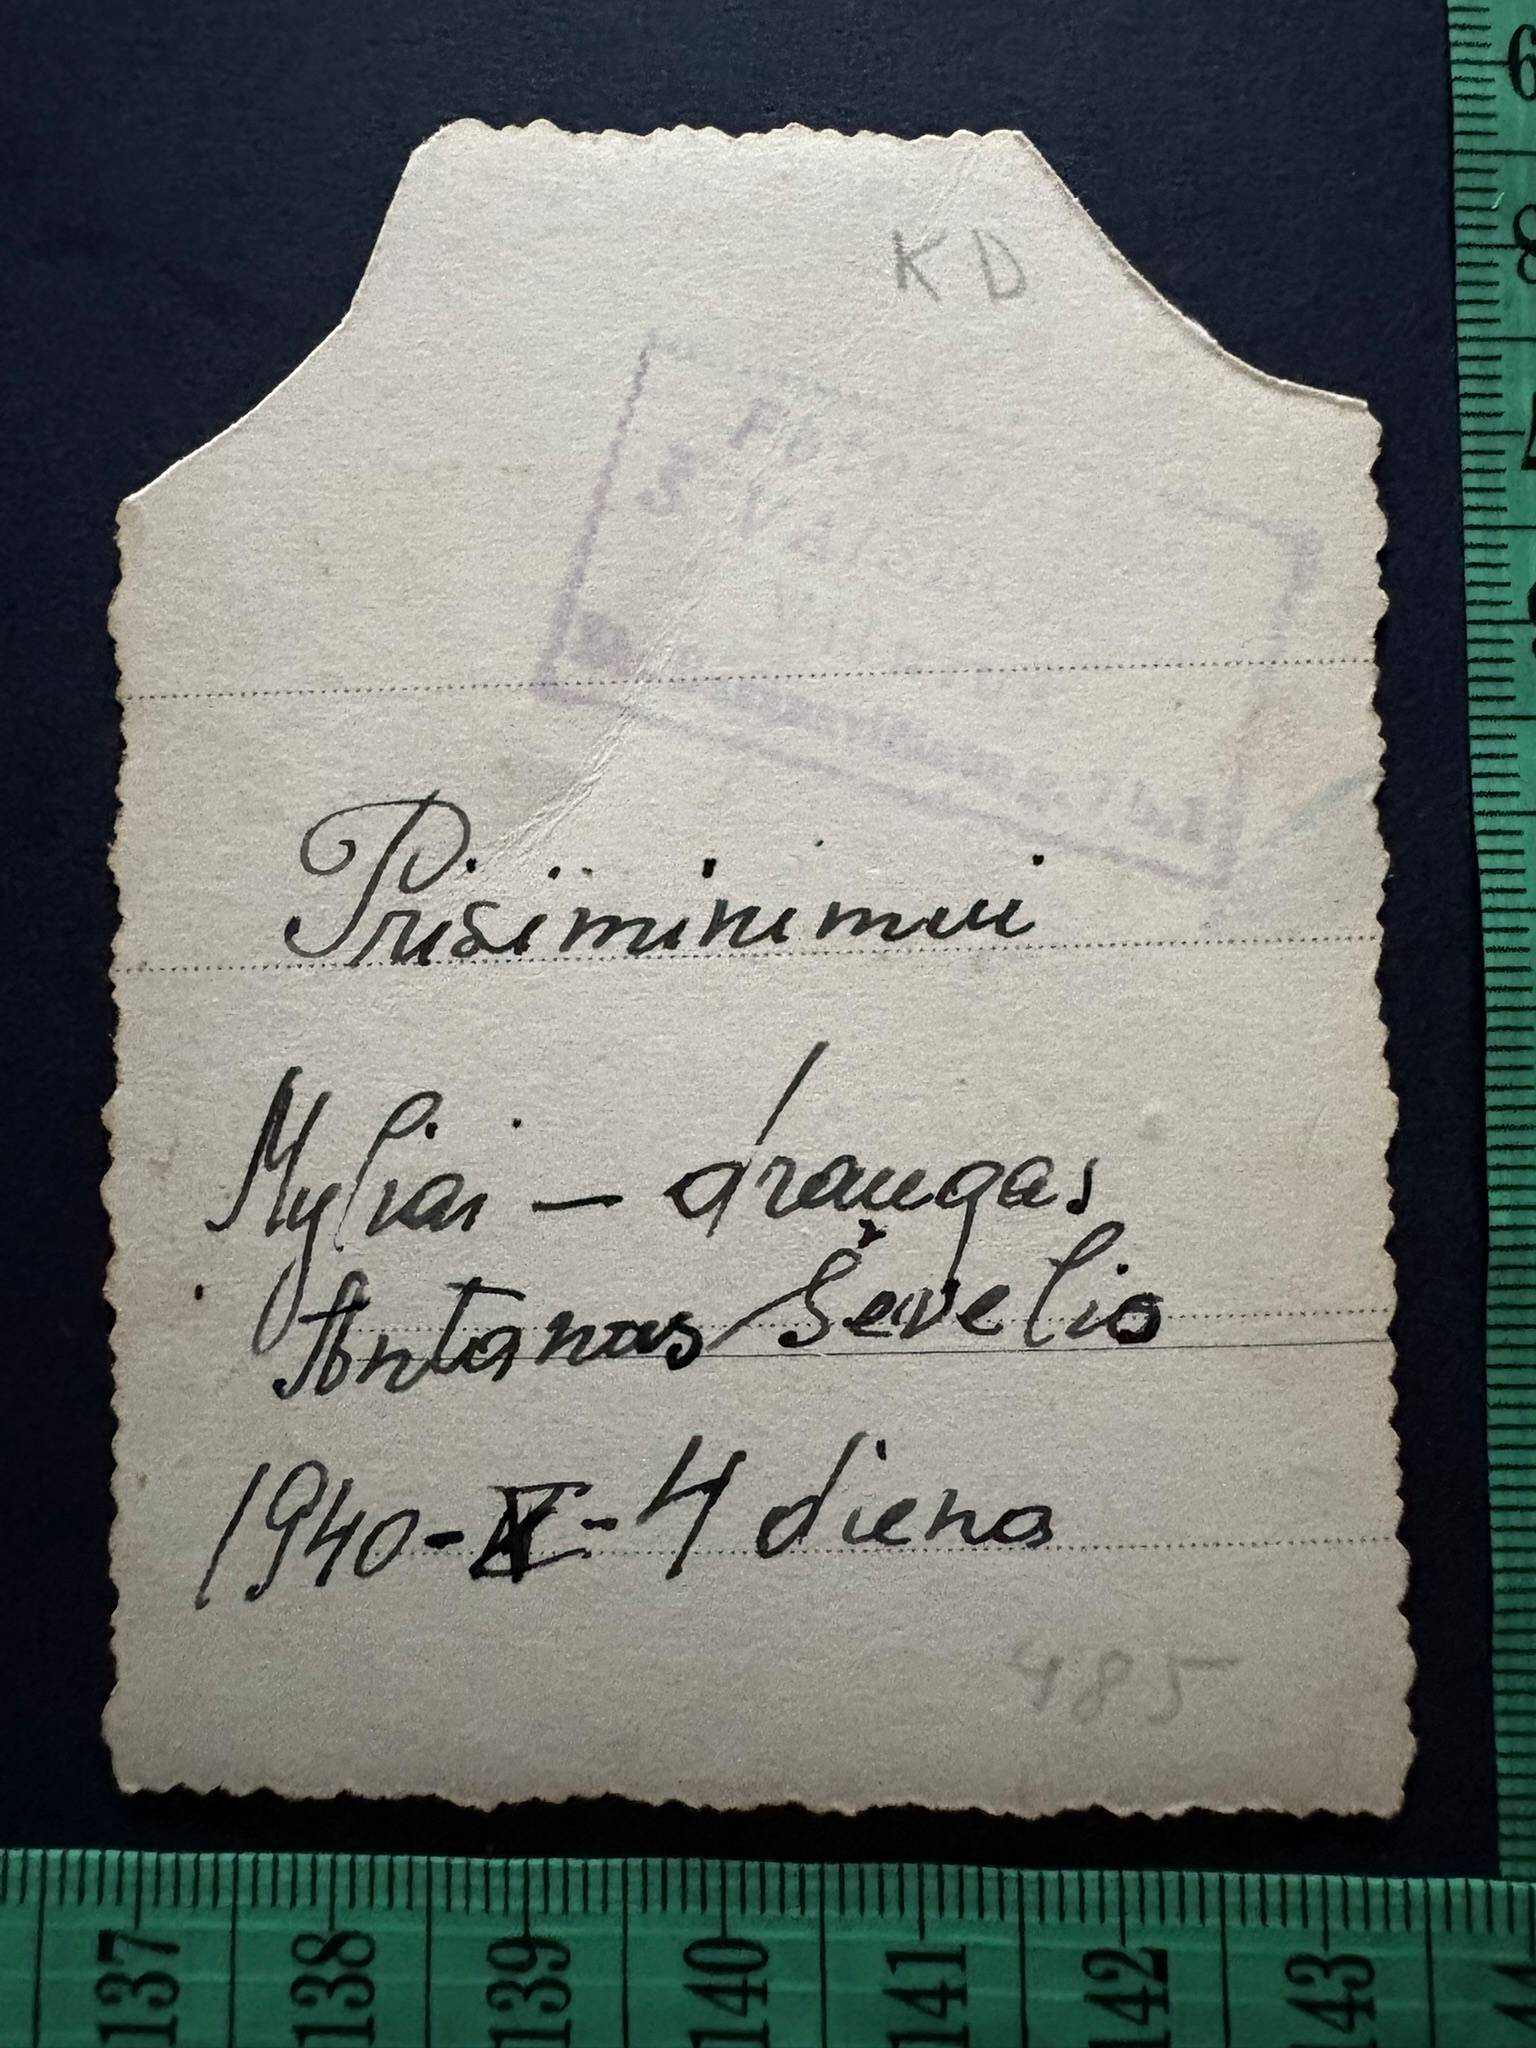 KD
Prisiminimui
Myliai — draugas
Antanas Ševelio
1940- -4 diena
485
137 138 139 140 141 142 143